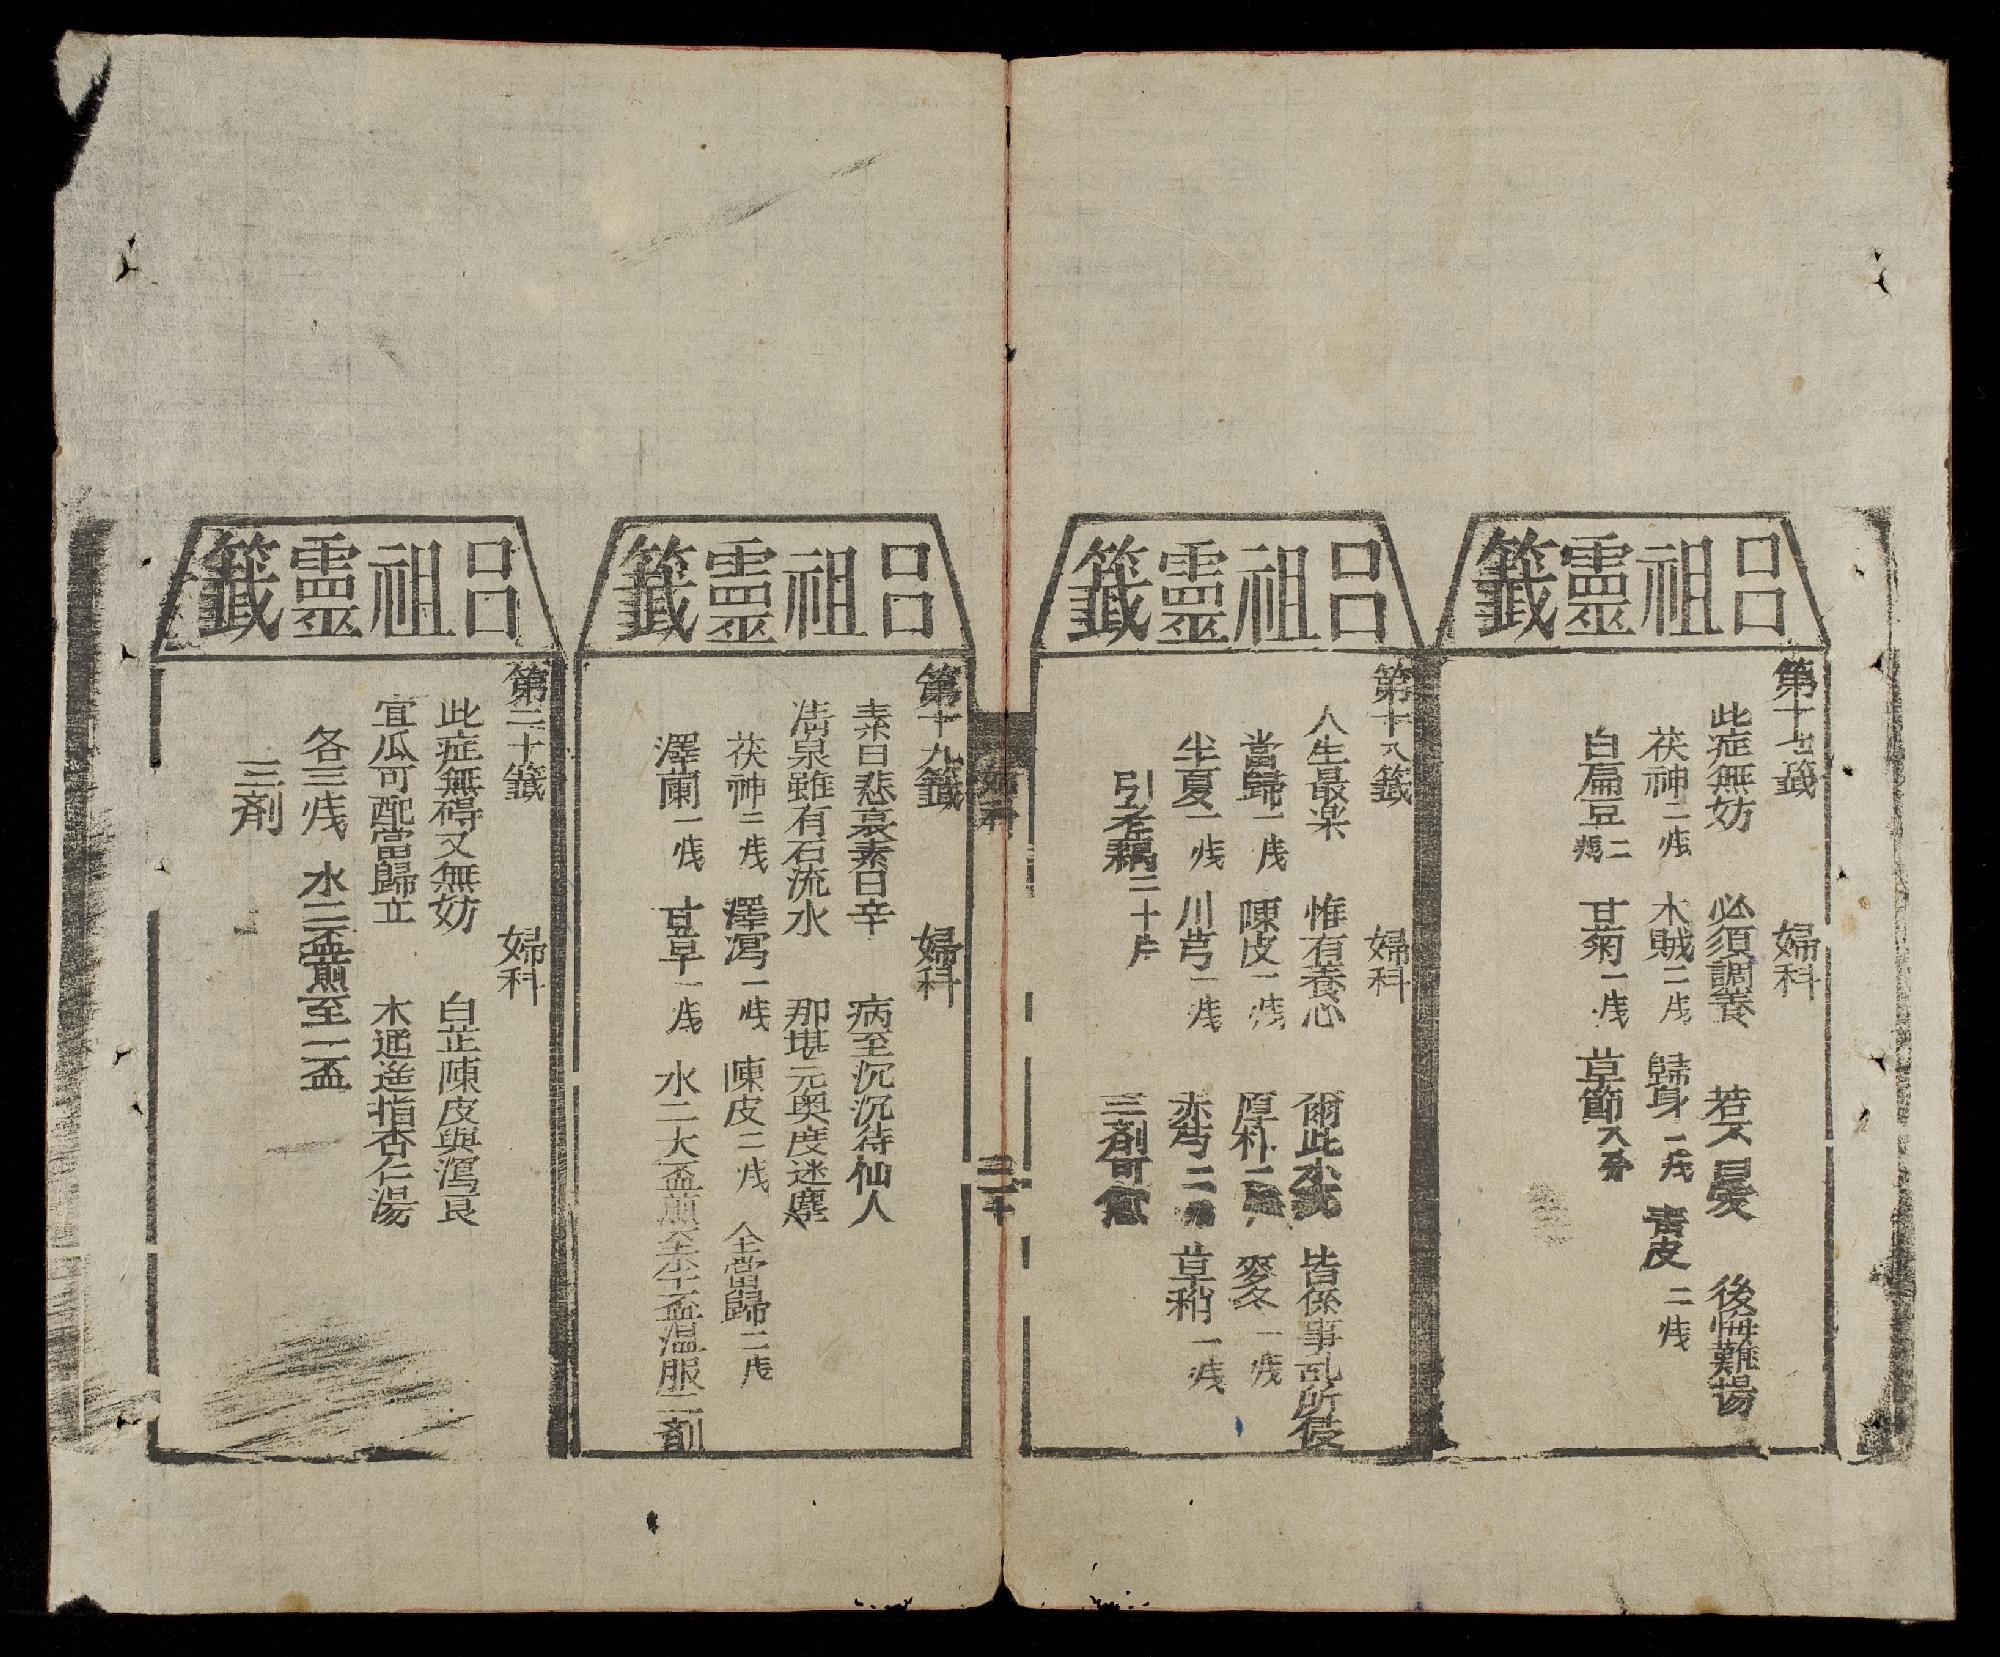 呂祖靈籤
第十七籤 婦科
此症無妨 必須調養 若不 後悔難
茯神二戋 木賊二戋 歸身二戋 青皮二戋
白扁豆二戋 甘菊一戋 草節八分
呂祖靈籤
第十八籤 婦科
人生最楽 惟有養心 爾此 皆係事乱所侵
當歸一戋 陳皮一戋 厚朴二 麥冬一戋
半夏一戋 川芎一戋 赤芍二 草稍一戋
引老藕二十片 三剤可愈
婦科
三十
呂祖靈籤
第十九籤 婦科
素日悲哀素日辛 病至沉沉待仙人
清泉雖有石流水 那堪元奥度迷塵
茯神二戋 澤瀉一戋 陳皮二戋 全當歸二戋
澤蘭一戋 甘草一戋 水二大盃煎至半盃温服二剤
呂祖靈籤
第二十籤 婦科
此症無碍又無妨 白芷陳皮與瀉良
宜瓜可配當歸立 木通迯指杏仁湯
各三戋 水二盃煎至一盃
三剤